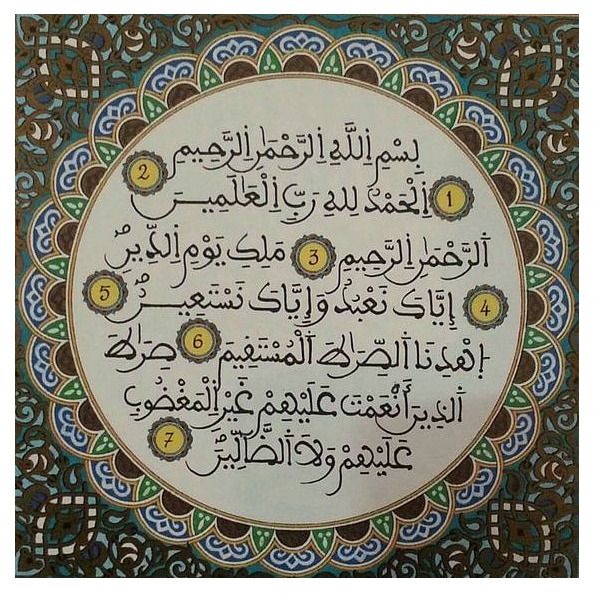 بِسْمِ اِللَّهِ اِلرَّحْمَٰنِ اِلرَّحِيمِ
1 اِلْحَمْدُ لِلهِ رَبِّ اِلْعَٰلَمِينَ 2
اَلرَّحْمَٰنِ اِلرَّحِيمِ 3 مَلِكِ يَوْمِ اِلدِّينِ
4 إِيَّاكَ نَعْبُدُ وَإِيَّاكَ نَسْتَعِينُ 5
اِهْدِنَا اَلصِّرَاطَ اَلْمُسْتَقِيمَ 6 صِرَاطَ
اَلذِينَ أَنْعَمْتَ عَلَيْهِمْ غَيْرِ اِلْمَغْضُوبِ
عَلَيْهِمْ وَلَا اَلضَّالِّينَ 7